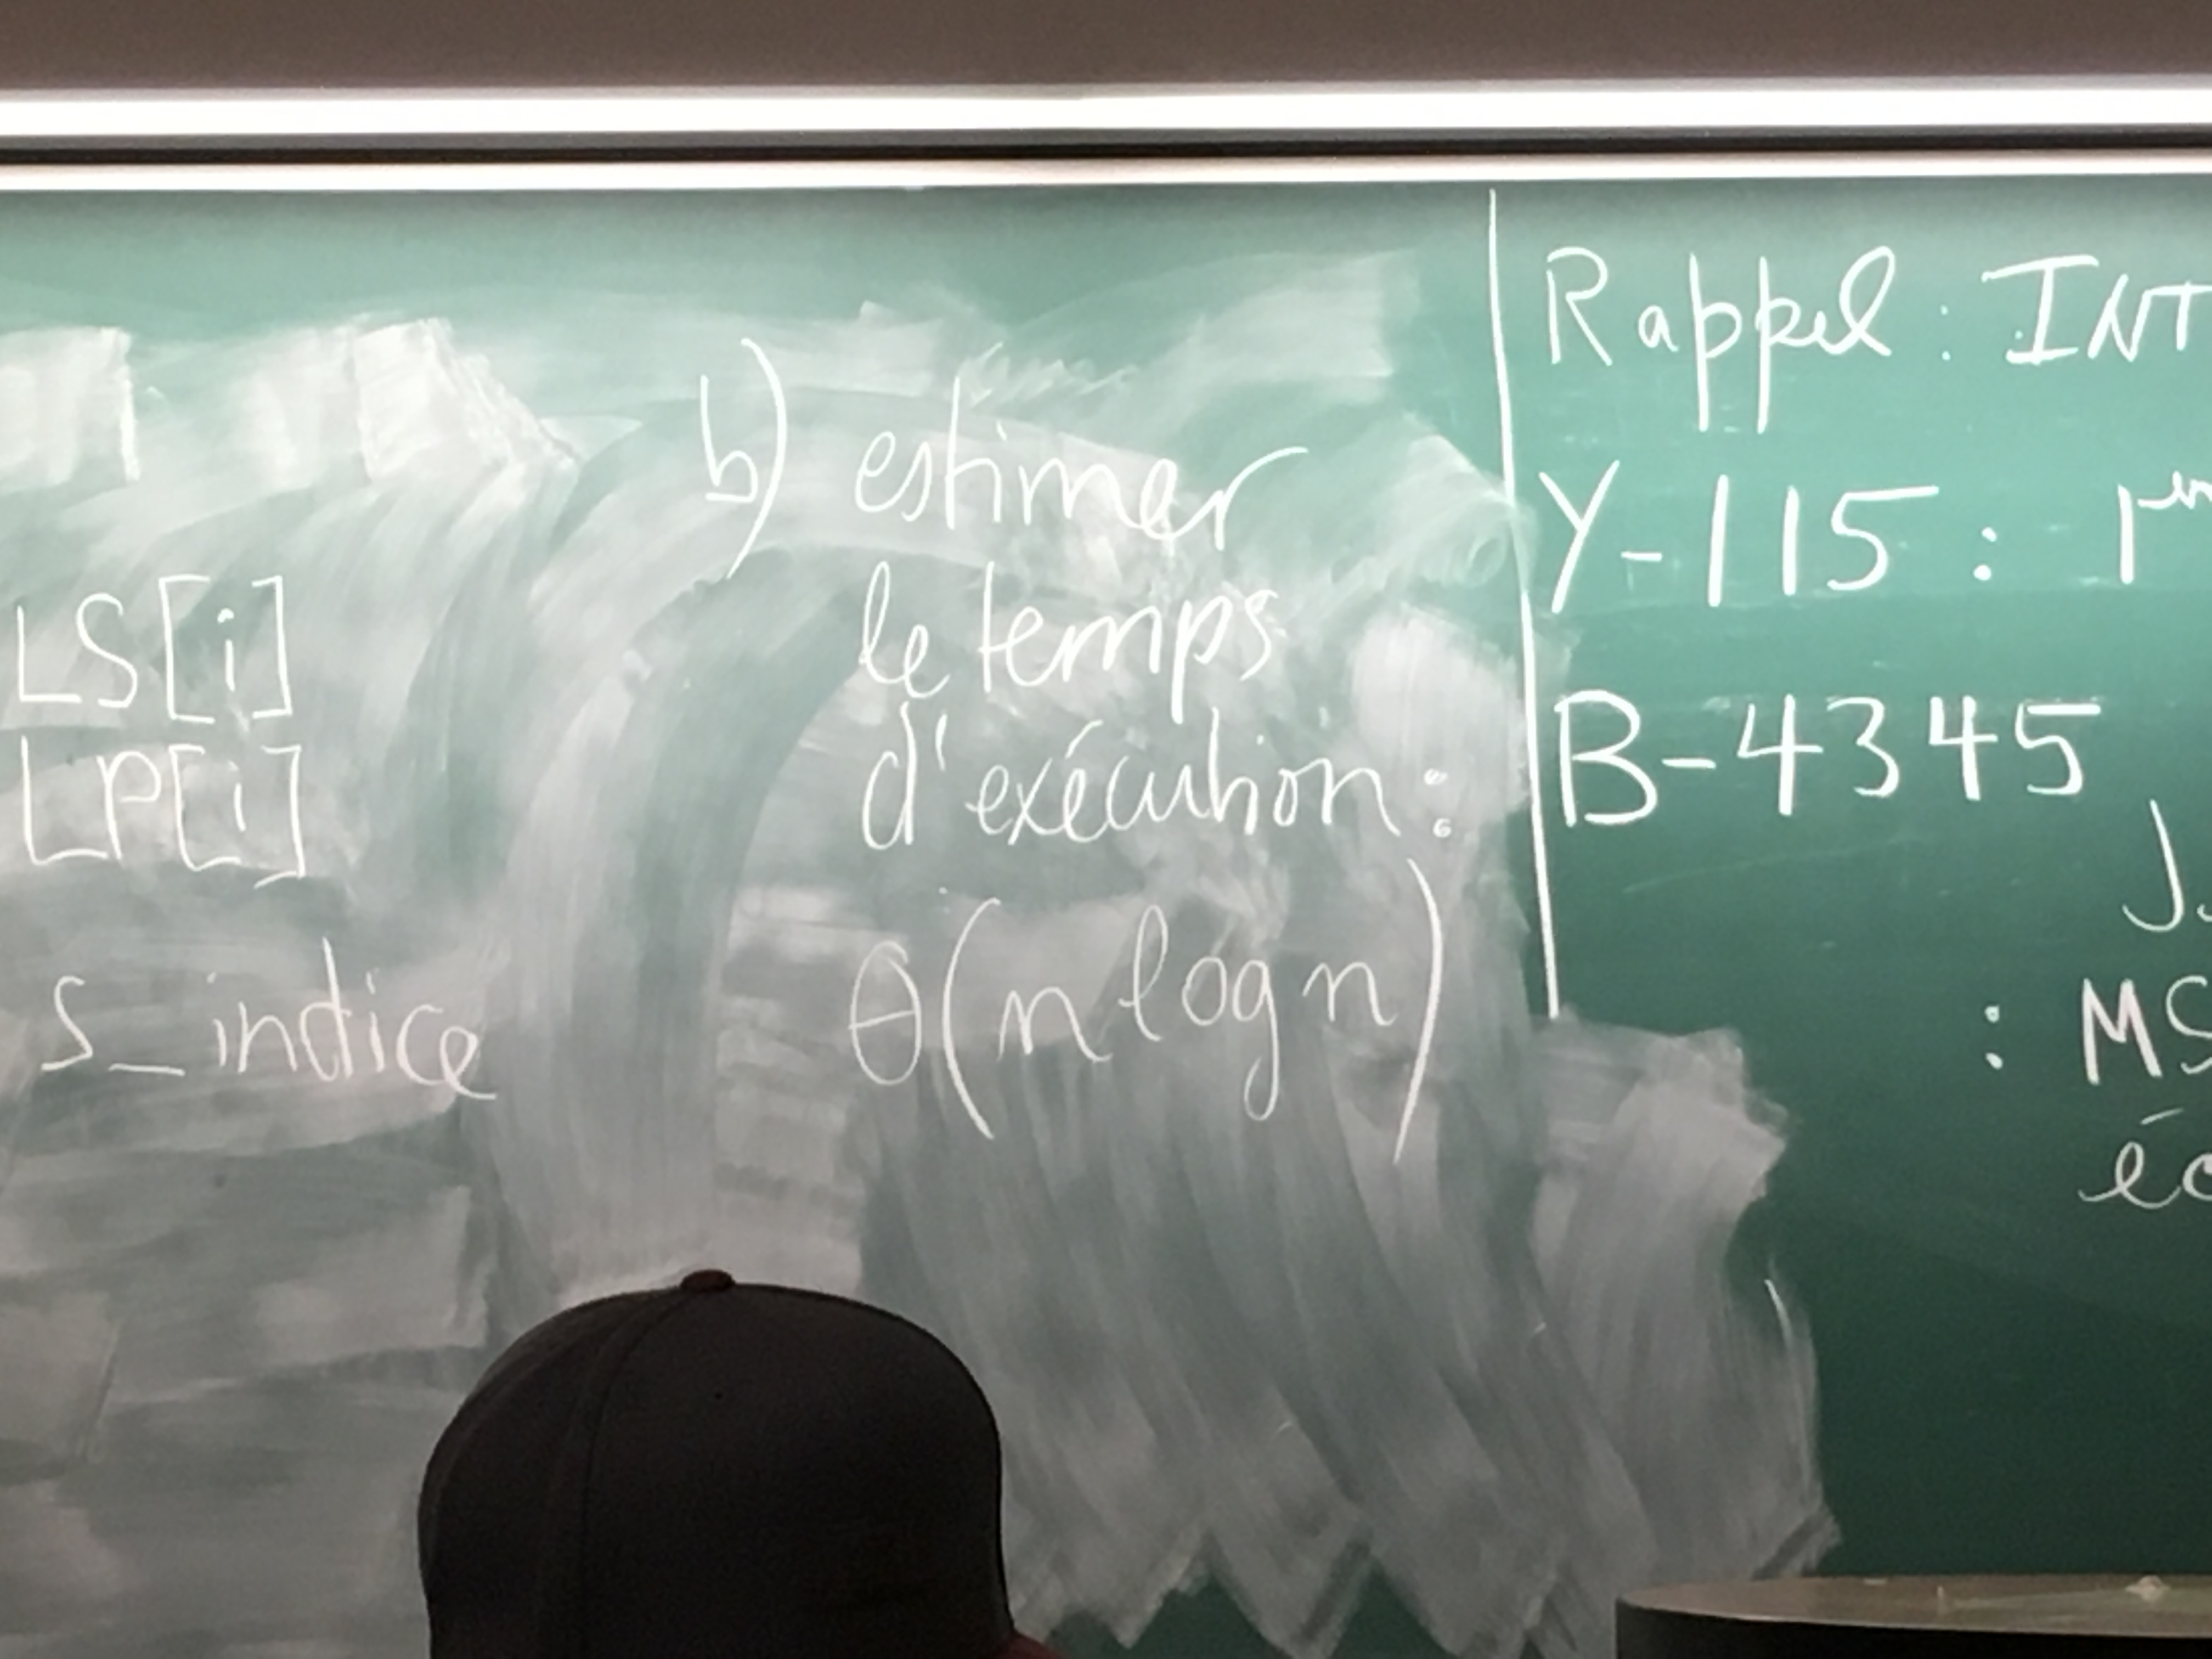 LS[i]
LP[i]
s_indice
b) estimer
le temps
d'exécution :
θ(n log n)
Rappel : INT
Y-115 :
B-4345
J.
: MS
éc